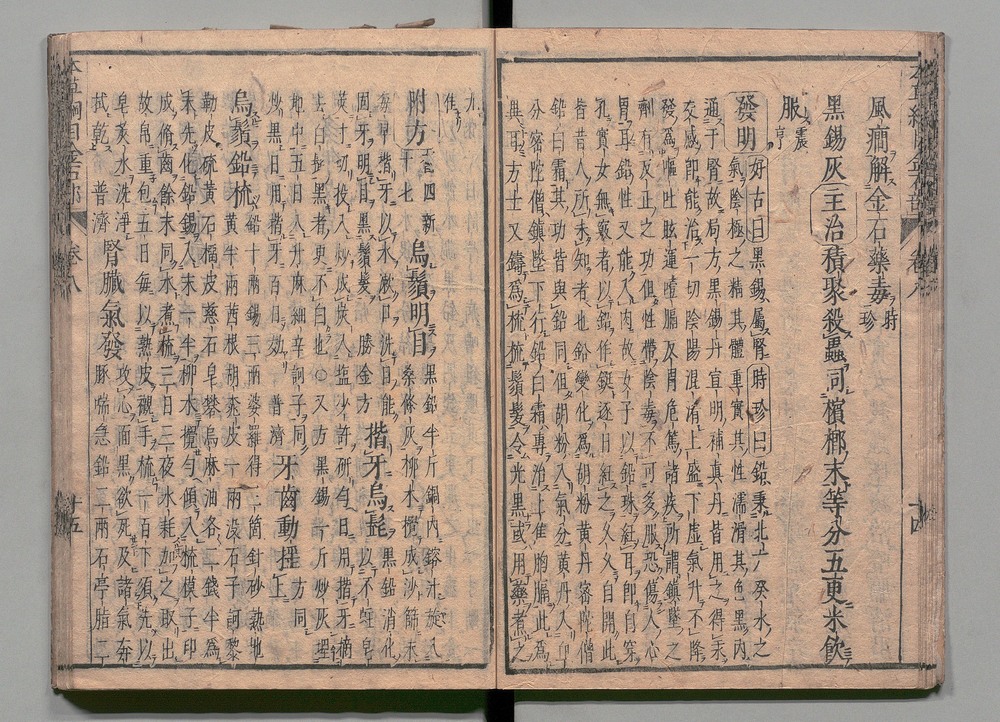 風癇解金石藥毒時珍
黑錫灰主治積聚殺蟲同檳榔末等分五更米飲
服震亨
發明好古曰黑錫屬腎時珍曰鉛秉北方癸水之
氣陰極之精其體重實其性濡滑其色黑內
通于腎故局方黑錫丹宣明補真丹皆用之得汞
交感即能治一切陰陽混淆上盛下虛氣升不降
發為嘔吐眩運噎膈反胃危篤諸疾所謂鎮墜之
劑有反正之功但性帶陰毒不可多服恐傷人心
胃耳鉛性又能入肉故女子以鉛珠紝耳即自穿
孔實女無竅者以鉛作鋌逐日紝之久久自開此
皆昔人所未知者也鉛變化為胡粉黃丹密陀僧
鉛白霜其功皆與鉛同但胡粉入氣分黃丹入血
分密陀僧鎮墜下行鉛白霜專治上焦胸膈此為
異耳方士又鑄為梳梳鬚髮令光黑或用藥煮之
尤佳
附方舊四新十七烏鬚明目黑鉛半斤鍋內鎔汁旋入
桑條灰柳木攪成沙篩末
每早揩牙以水漱口洗目能揩牙烏髭黑鉛消化
固牙明目黑鬚髮勝金方以不蛀皁
莢寸切投入炒成炭入鹽少許研勻日用揩牙摘
去白髭黑者更不白也○又方黑錫一斤炒灰埋
地中五日入升麻細辛訶子同
炒黑日用揩牙百日效普濟方牙齒動搖方同上
烏鬚鉛梳鉛十兩錫三兩婆羅得三箇針砂熟地
黃半兩茜根胡桃皮一兩沒石子訶黎
勒皮硫黃石榴皮慈石皁礬烏麻油各二錢半為
末先化鉛錫入末一半柳木攪勻傾入梳模子印
成修齒餘末同水煮梳三日三夜水耗加之取出
故帛重包五日每以熟皮襯手梳一百下須先以
皁莢水洗淨拭乾普濟腎臟氣發攻心面黑欲死及諸氣奔
豚喘急鉛二兩石亭脂二